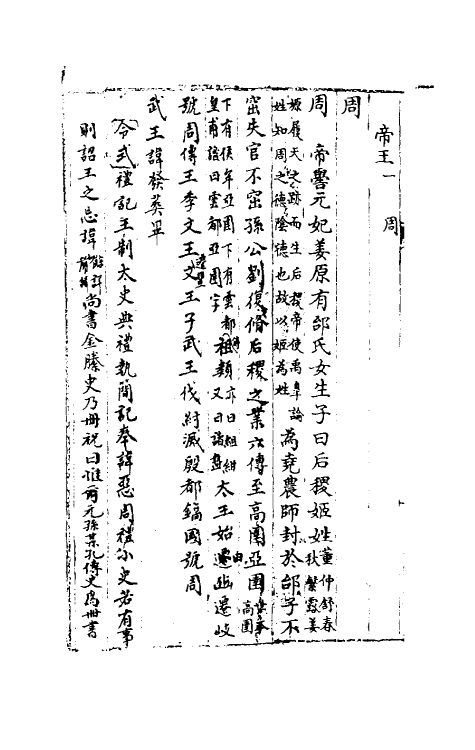 帝王一　周
周
周　帝嚳元妃姜原有邰氏女生子曰后稷姬姓董仲舒春秋繁露姜
嫄履天之跡而生后稷帝使禹皐論
姓知周之德陰德也故以姬為姓為堯農師封於邰子不
窋失官不窋孫公劉復脩后稷之業六傳至高圉亞圉
下有侯牟亞圉下有雲都祖類亦曰組紺
皇甫謐曰雲都亞圉字又曰諸盩太王始由豳遷岐
號周傳王季文王文王子武王伐紂滅殷都鎬國號周
武王諱發葬畢
令式禮記王制太史典禮執簡記奉諱惡周禮小史若有事
則詔王之忌諱尚書金縢史乃冊祝曰惟爾元孫某孔傳史為冊書